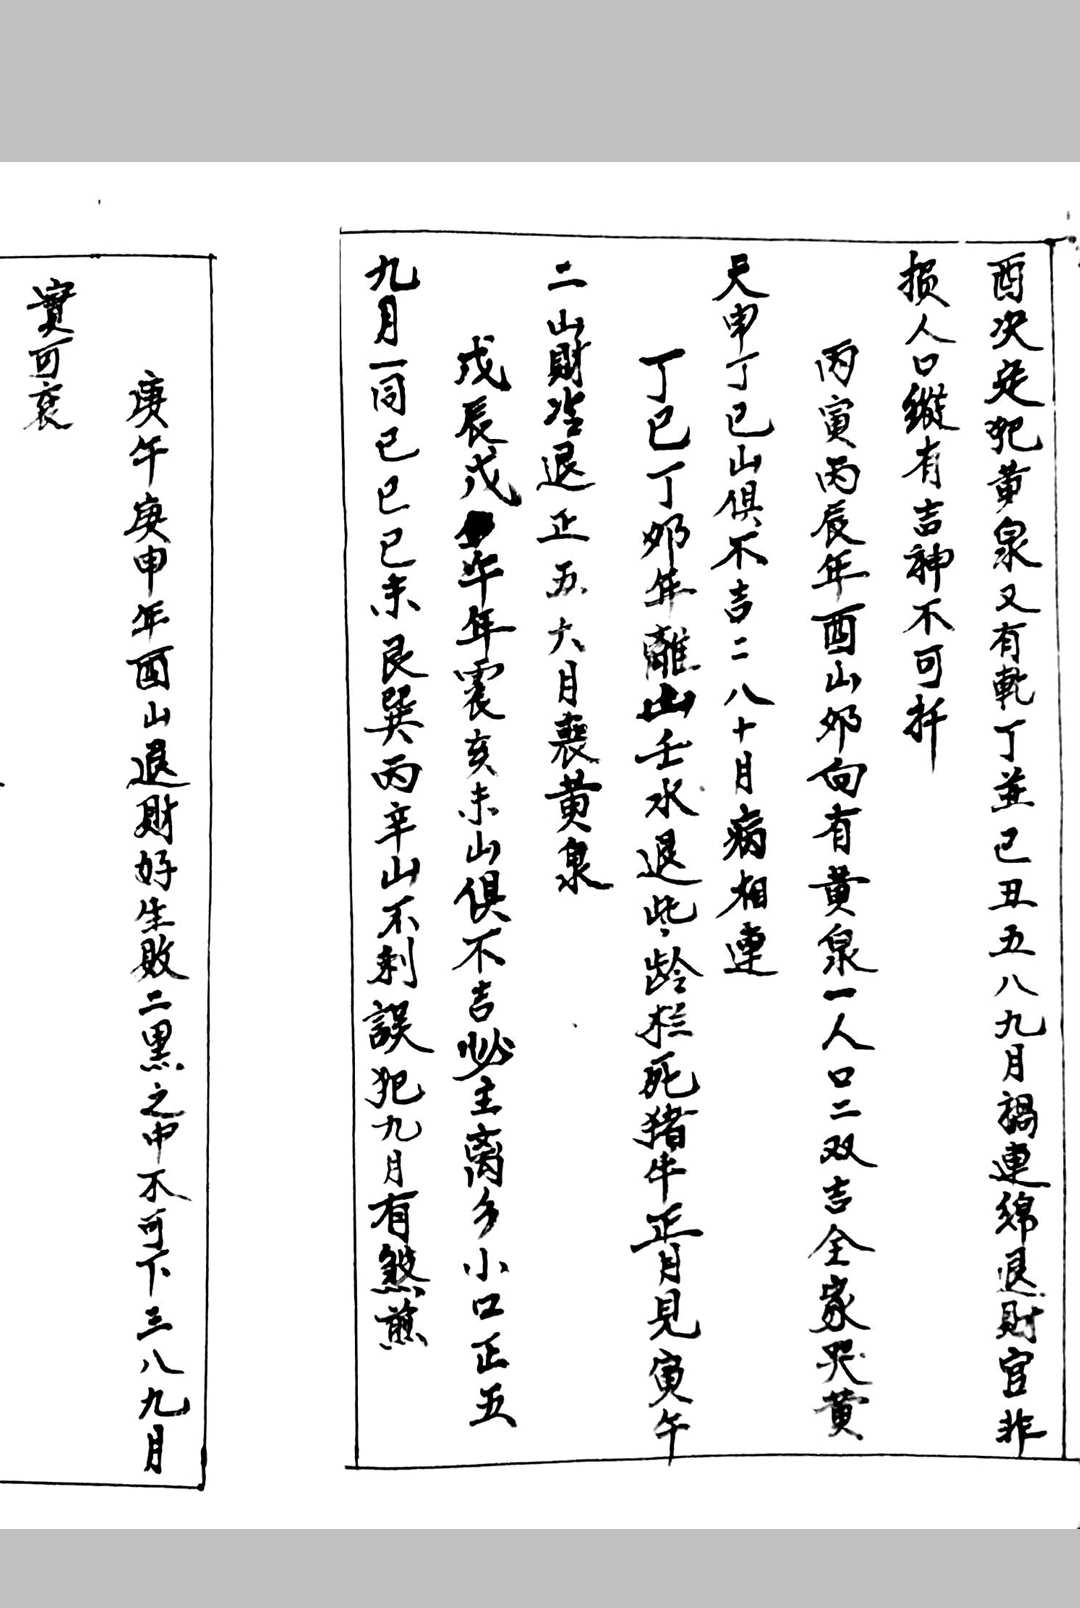 酉决定犯黄泉又有乾丁並己丑五八九月禍連綿退財官非
損人口縱有吉神不可扦
丙寅丙辰年酉山夘向有黄泉一人口二双吉全家哭黄
天申丁巳山俱不吉二八十月病相連
丁巳丁夘年離山壬水退些龄栏死猪牛正月見寅午
二山財冷退正五六月丧黄泉
戊辰戊午年震亥未山俱不吉必主离乡小口正五
九月一同己巳己未艮巽丙辛山不利誤犯九月有煞煎
庚午庚申年酉山退財好生敗二黑之中不可下三八九月
實可哀